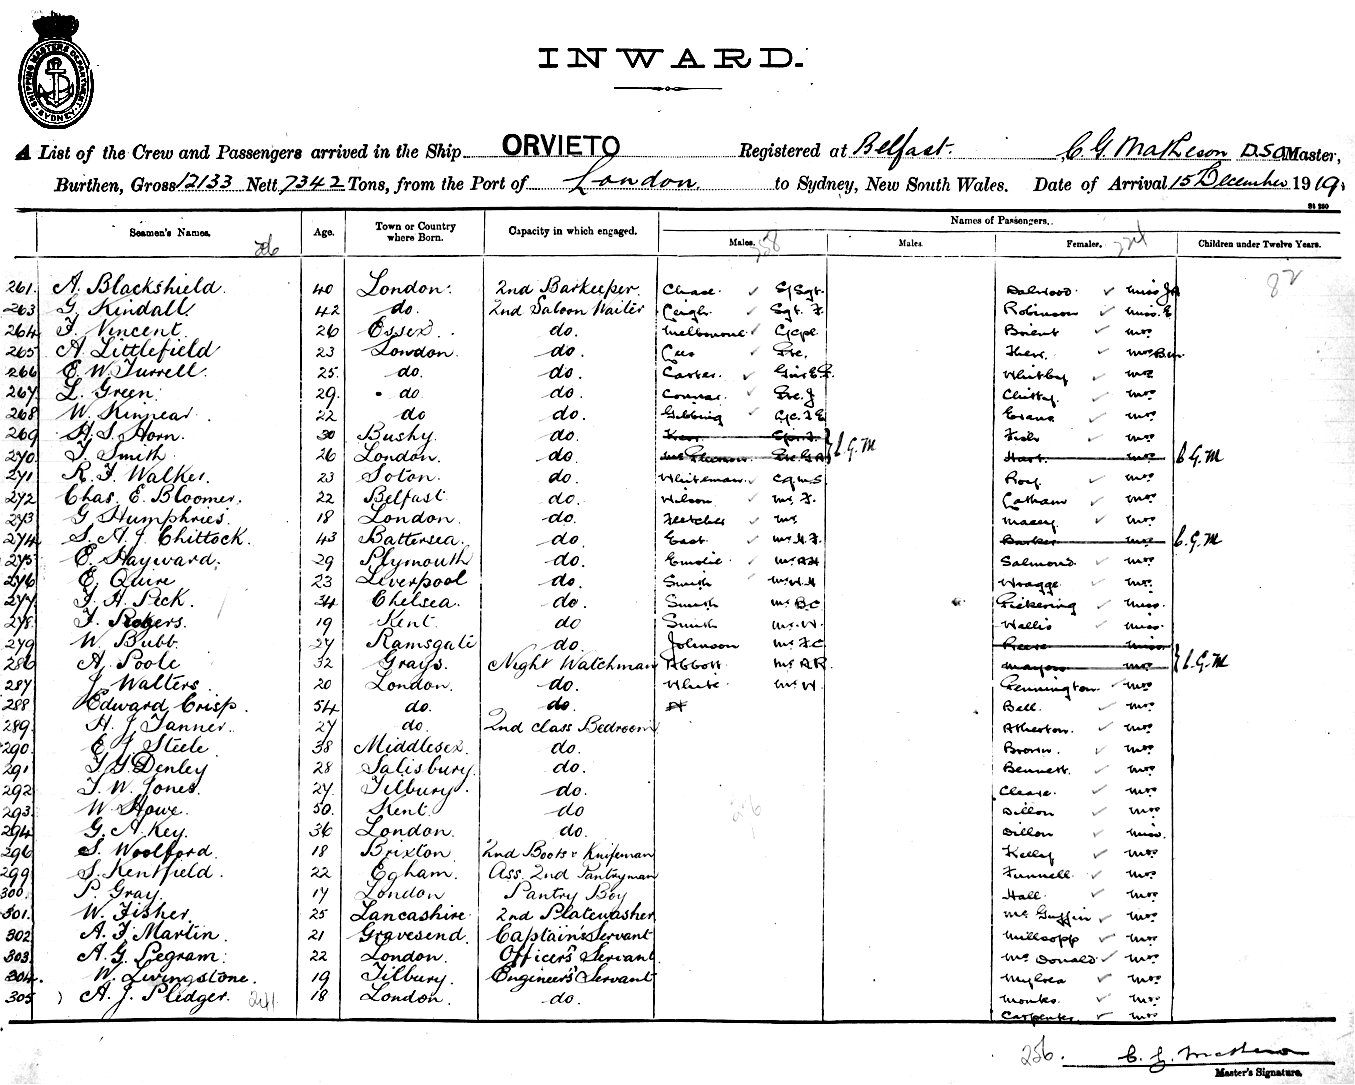 SHIPPING MASTERS DEPARTMENT SYDNEY
INWARD.
A List of the Crew and Passengers arrived in the Ship ORVIETO Registered at Belfast. C. G. Matheson D.S.O. Master,
Burthen, Gross 12133 Nett 7342 Tons, from the Port of London to Sydney, New South Wales. Date of Arrival 15 December 1919.
Seamen's Names. Age. Town or Country where Born. Capacity in which engaged. Names of Passengers.
Males. Males. Females. Children under Twelve Years.
82
261. A. Blackshield. 40 London. 2nd Barkeeper. Chase. ✓ ✓ Miss
263 G. Kindall 42 do. 2nd Saloon Waiter ✓ Sgt. F. Robinson ✓ Miss. E
264 F. Vincent 26 Essex. do. Melbourne ✓ ✓ Mrs
265 A. Littlefield 23 London. do. ✓ Pte. ✓ Mrs
266 E. W. Turrell. 25. do. do. Carter. ✓ Whitby ✓ Mrs
267 L. Green. 29. do. do. ✓ Pte. J Chitty. ✓ Mrs
268 W. Kinnear. 22 do do. Gibbing ✓ Evans ✓ Mrs
269 H. S. Horn. 30 Bushy. do. Fish ✓ Mrs
270. T. Smith. 26 London. do. C.G.M Hart. Mrs C.G.M
271 R. F. Walker. 23 Soton. do. Whiteman ✓ CQMS Roy. ✓ Mrs
272 Chas. E. Bloomer. 22 Belfast. do. Wilson ✓ Mr. F. Latham ✓ Mrs
273 G. Humphries. 18 London. do. Fletcher ✓ Mr Macey ✓ Mrs
274 S. A. J. Chittock. 43 Battersea. do. East ✓ Mr. H. F. Barker Mrs C.G.M
275 E. Hayward. 29 Plymouth do. Salmond. ✓ Mrs
276 E. Quire 23 Liverpool do. Smith Mr. W. H Wragge ✓ Mrs
277 F. H. Peck. 34 Chelsea. do. Smith Mr. B C Pickering ✓ Miss.
278. F. Rogers. 19 Kent. do Smith Mr. W. Wallis ✓ Miss.
279 W. Bubb. 27 Ramsgate do. Johnson Mr. F. C Reeve Miss
286 A. Poole 32 Grays. Night Watchman Abbott Mr. A R. Mayors Mrs C.G.M
287 J. Walters. 20 London. do. White Mr. W. Pennington ✓ Mrs
288 Edward Crisp. 54 do. do. Bell. ✓ Mrs
289 H. J. Tanner. 27 do. 2nd Class Bedroom Atherton. ✓ Mrs
290. E. J. Steele 38 Middlesex. do. Brown. ✓ Mrs
291 F. G. Denley 28 Salisbury. do. Bennett. ✓ Mrs
292 F. W. Jones. 27 Tilbury. do. Clease. ✓ Mrs
293 W. Howe. 50. Kent. do Dillon ✓ Mrs
294 G. A. Key. 36 London. do. Dillon ✓ Miss.
296 S. Woolford. 18 Brixton 2nd Boots & Knifeman Kelly ✓ Mrs
299 S. Kentfield. 22 Egham. Ass. 2nd Pantryman Funnell ✓ Mrs
300. P. Gray. 17 London Pantry Boy Hall. ✓ Mrs
301. W. Fisher 25 Lancashire. 2nd Platewasher McGuffin ✓ Mrs
302 A. F. Martin. 21 Gravesend. Captain's Servant Millsopp ✓ Mrs
303. A. G. Pegram. 22 London. Officers' Servant. McDonald ✓ Mrs
304. W. Livingstone. 19 Tilbury. Engineers' Servant Mylrea ✓ Mrs
305 A. J. Pledger. 241 18 London. do. Monks. ✓ Mrs
Carpenter ✓ Mrs
256. C. G. Matheson
Master's Signature.